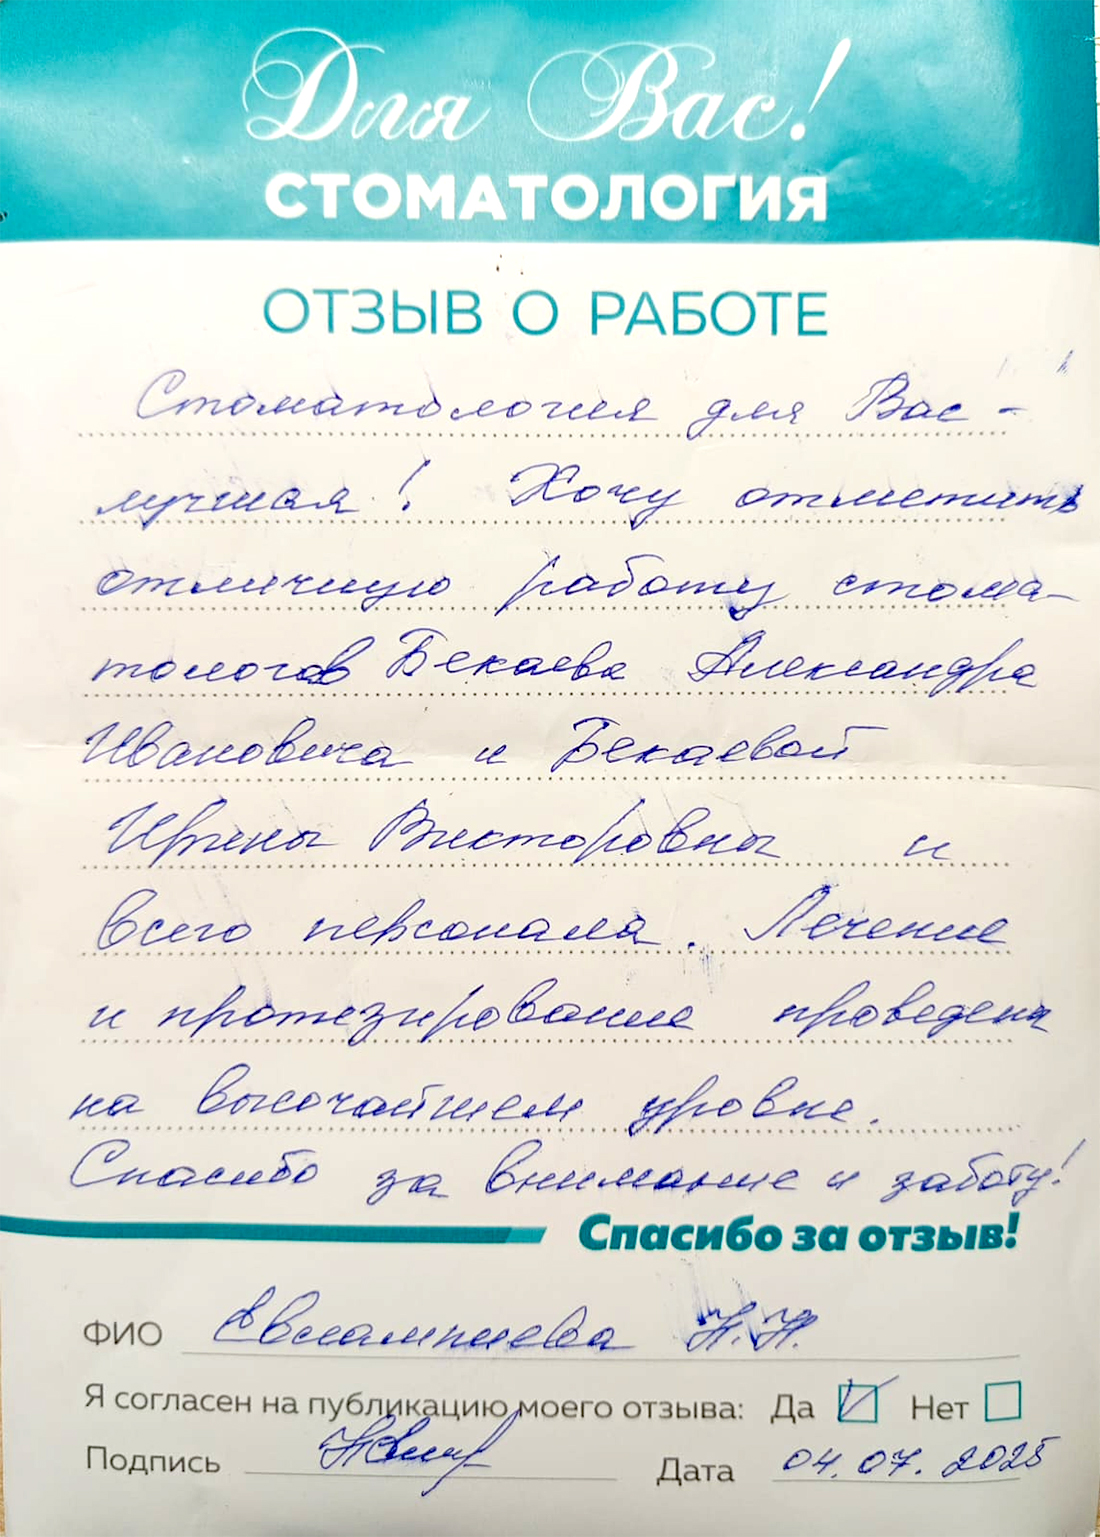 Для Вас!
СТОМАТОЛОГИЯ
ОТЗЫВ О РАБОТЕ
Стоматология для Вас -
лучшая! Хочу отметить
отличную работу стома-
тологов Бекаева Александра
Ивановича и Бекаевой
Ирины Викторовны и
всего персонала. Лечение
и протезирование проведены
на высочайшем уровне.
Спасибо за внимание и заботу!
Спасибо за отзыв!
ФИО Евлампиева Н.Н.
Я согласен на публикацию моего отзыва: Да Нет
Подпись Дата 04.07.2025